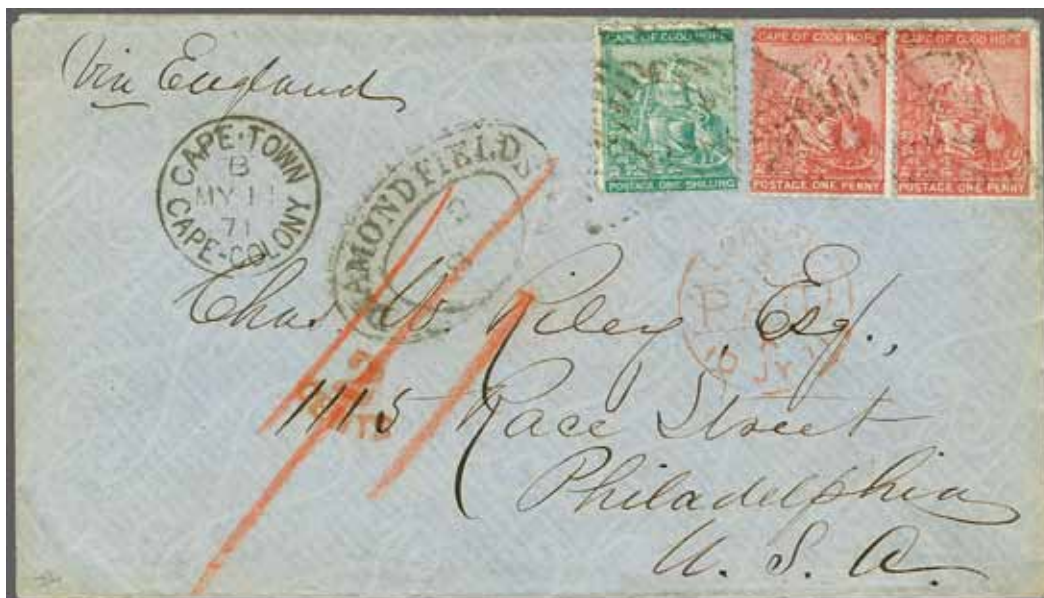 Via England
CAPE OF GOOD HOPE
POSTAGE ONE SHILLING
CAPE OF GOOD HOPE
POSTAGE ONE PENNY
CAPE OF GOOD HOPE
POSTAGE ONE PENNY
CAPE-TOWN
B
MY 11
71
CAPE-COLONY
AMOND FIELDS
PAID
Chas. W. Riley, Esq.,
1115 Race Street
Philadelphia
U. S. A.